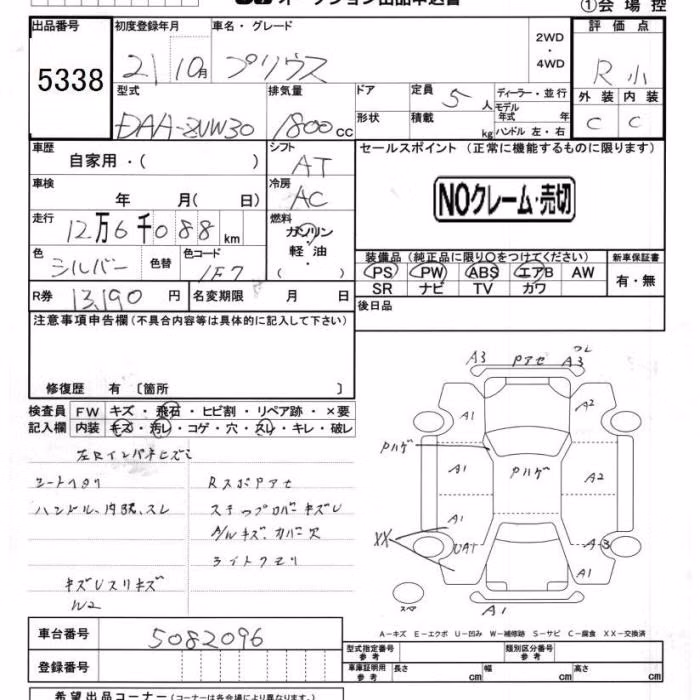 ①会場控
出品番号 初度登録年月 車名・グレード 2WD ・ 4WD 評価点
5338 21 10月 プリウス R 小
型式 排気量 ドア 定員 5 人 ディーラー・並行 外装 内装
形状 積載 kg モデル年式 年 ハンドル 左・右
DAA-ZVW30 1800 CC C C
車歴 自家用・( ) シフト AT セールスポイント (正常に機能するものに限ります)
車検 年 月( 日) 冷房 AC NOクレーム・売切
走行 12万6千088 km 燃料 ガソリン 軽・油 ・( )
色 シルバー 色替 色コード 1F7 装備品 (純正品に限り○をつけてください) 新車保証書
PS PW ABS エアB AW 有・無
SR ナビ TV カワ
R券 13,190 円 名変期限 月 日 後日品
注意事項申告欄 (不具合内容等は具体的に記入して下さい)
修復歴 有 〔箇所 〕
検査員 FW キズ・飛石・ヒビ割・リペア跡・×要
記入欄 内装 キズ・汚レ・コゲ・穴・スレ・キレ・破レ
シートヘタリ RスポPアセ
ハンドル、内張、スレ ステップカバーキズU
A/Wキズ、カバー欠
ライトクモリ
キズUスリキズ
W2
A3 Pアセ A3
A1 A2
Pハゲ
A1 Pハゲ A2
A1
XX UA1 A3
A1
A1
A-キズ E-エクボ U-凹み W-補修跡 S-サビ C-腐食 XX-交換済
車台番号 5082096
型式指定番号 参考 類別区分番号 参考
登録番号 車庫証明用 参考 長さ cm 幅 cm 高さ cm
希望出品コーナー (コーナーは各会場により異なります)